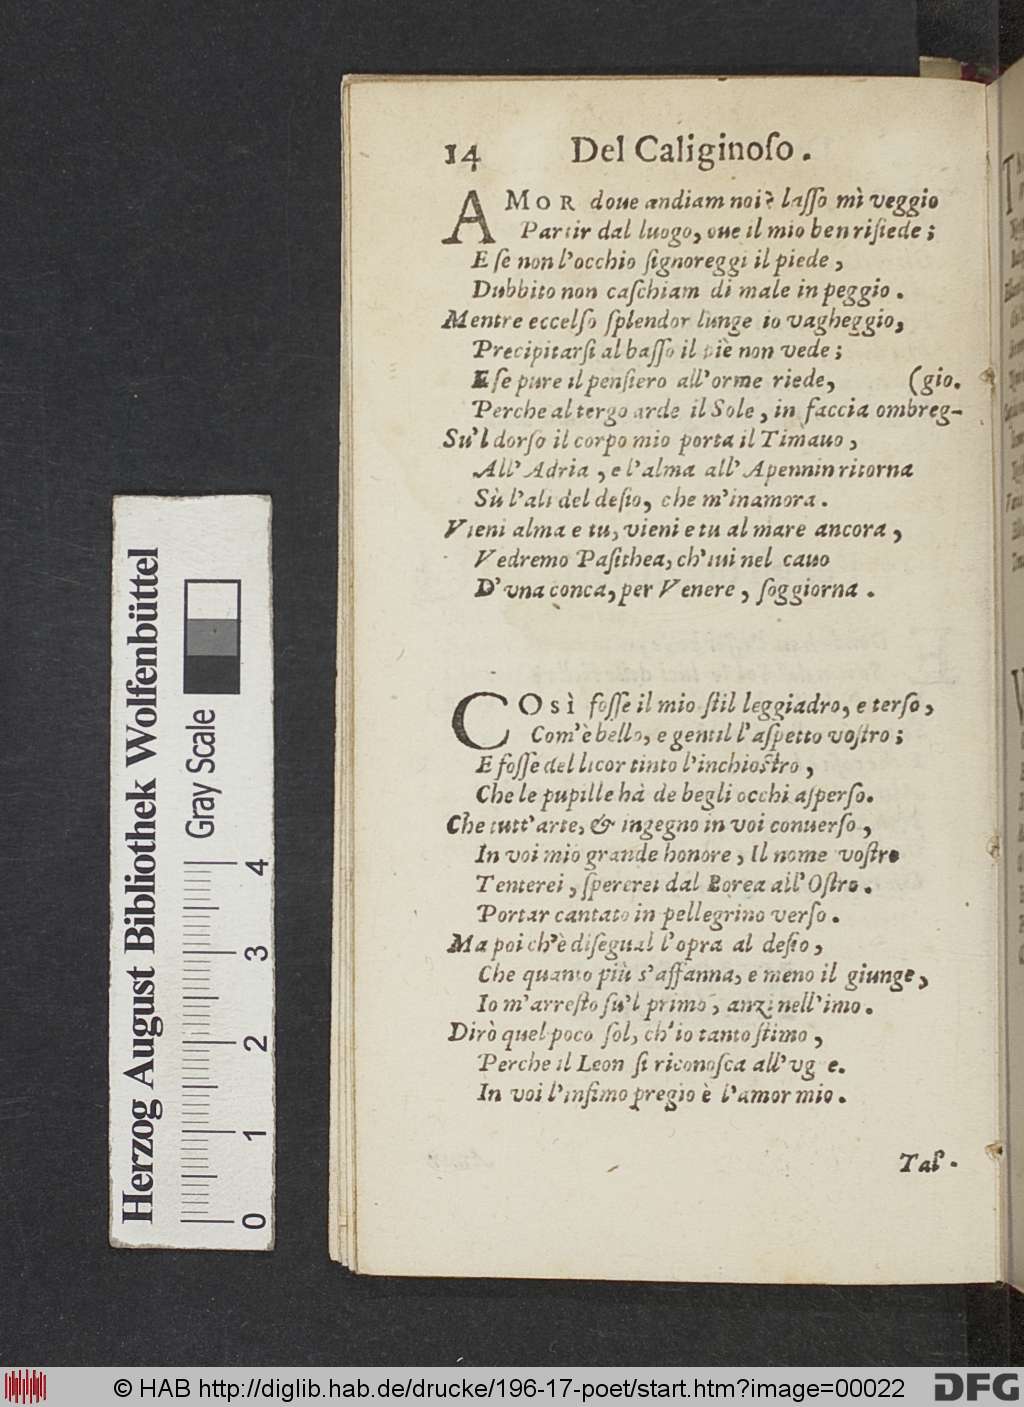 14 Del Caliginoſo.
AMOR doue andiam noi? laſſo mì veggio
Partir dal luogo, oue il mio ben riſiede;
E ſe non l'occhio ſignoreggi il piede,
Dubbito non caſchiam di male in peggio.
Mentre eccelſo ſplendor lunge io vagheggio,
Precipitarſi al baſſo il piè non vede;
E ſe pure il penſiero all'orme riede, (gio.
Perche al tergo arde il Sole, in faccia ombreg-
Su'l dorſo il corpo mio porta il Timauo,
All' Adria, e l'alma all' Apennin ritorna
Sù l'ali del deſio, che m'inamora.
Vieni alma e tu, vieni e tu al mare ancora,
Vedremo Paſithea, ch'iui nel cauo
D'vna conca, per Venere, ſoggiorna.
COSÌ foſſe il mio ſtil leggiadro, e terſo,
Com'è bello, e gentil l'aſpetto voſtro;
E foſſe del licor tinto l'inchioſtro,
Che le pupille hà de begli occhi aſperſo.
Che tutt'arte, & ingegno in voi conuerſo,
In voi mio grande honore, Il nome voſtro
Tenterei, ſpererei dal Borea all'Oſtro.
Portar cantato in pellegrino verſo.
Ma poi ch'è diſegual l'opra al deſio,
Che quanto più s'affanna, e meno il giunge,
Io m'arreſto ſu'l primo, anzi nell'imo.
Dirò quel poco ſol, ch'io tanto ſtimo,
Perche il Leon ſi riconoſca all'vg e.
In voi l'infimo pregio è l'amor mio.
Taſ.
Herzog August Bibliothek Wolfenbüttel
Gray Scale
0 1 2 3 4
© HAB http://diglib.hab.de/drucke/196-17-poet/start.htm?image=00022
DFG